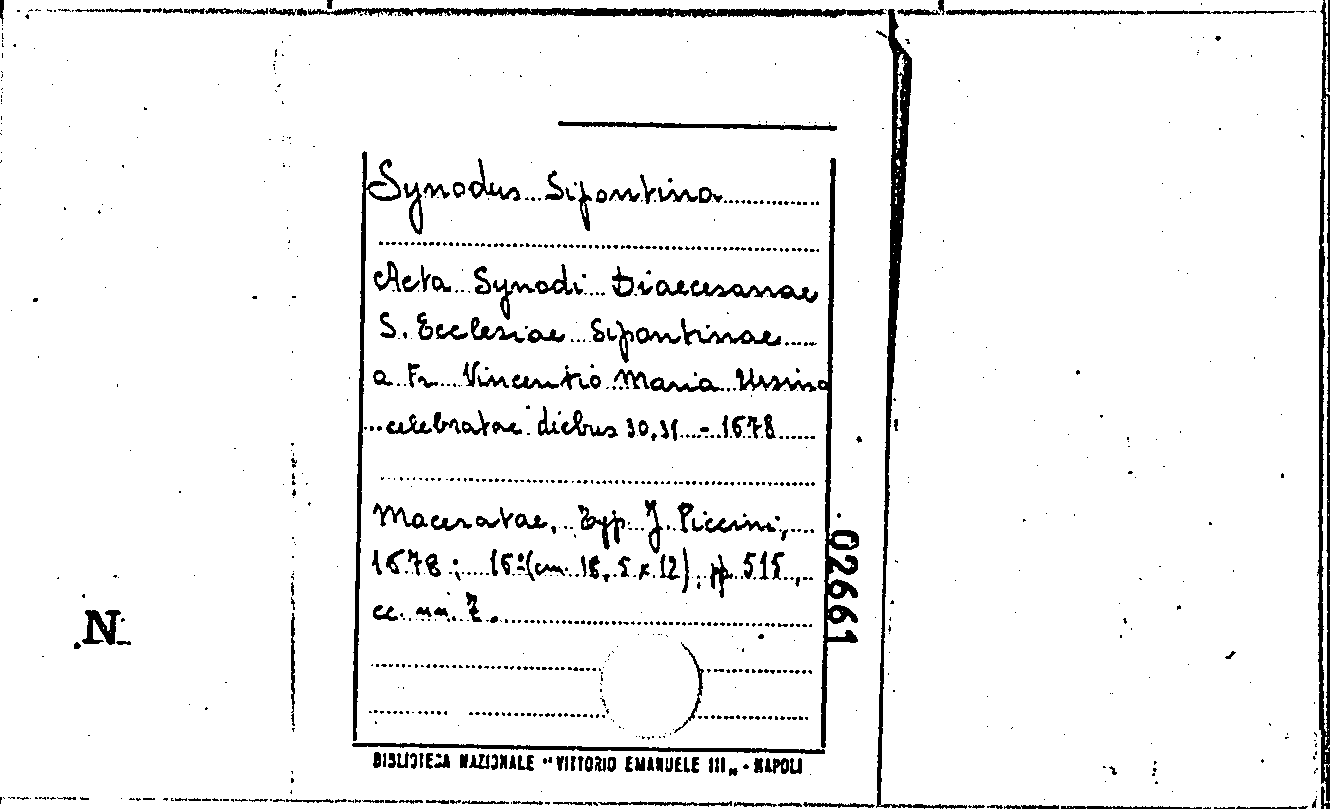 Synodus Sipontina
Acta Synodi Diaecesanae
S. Ecclesiae Sipontinae
a Fr. Vincentio Maria Ursino
celebratae diebus 30,31 - 1678
Maceratae, Typ. J. Piccini,
1678; 16°(cm. 18,5 x 12), pp. 515,
cc. nn. 7.
02661
N
BIBLIOTECA NAZIONALE "VITTORIO EMANUELE III" - NAPOLI